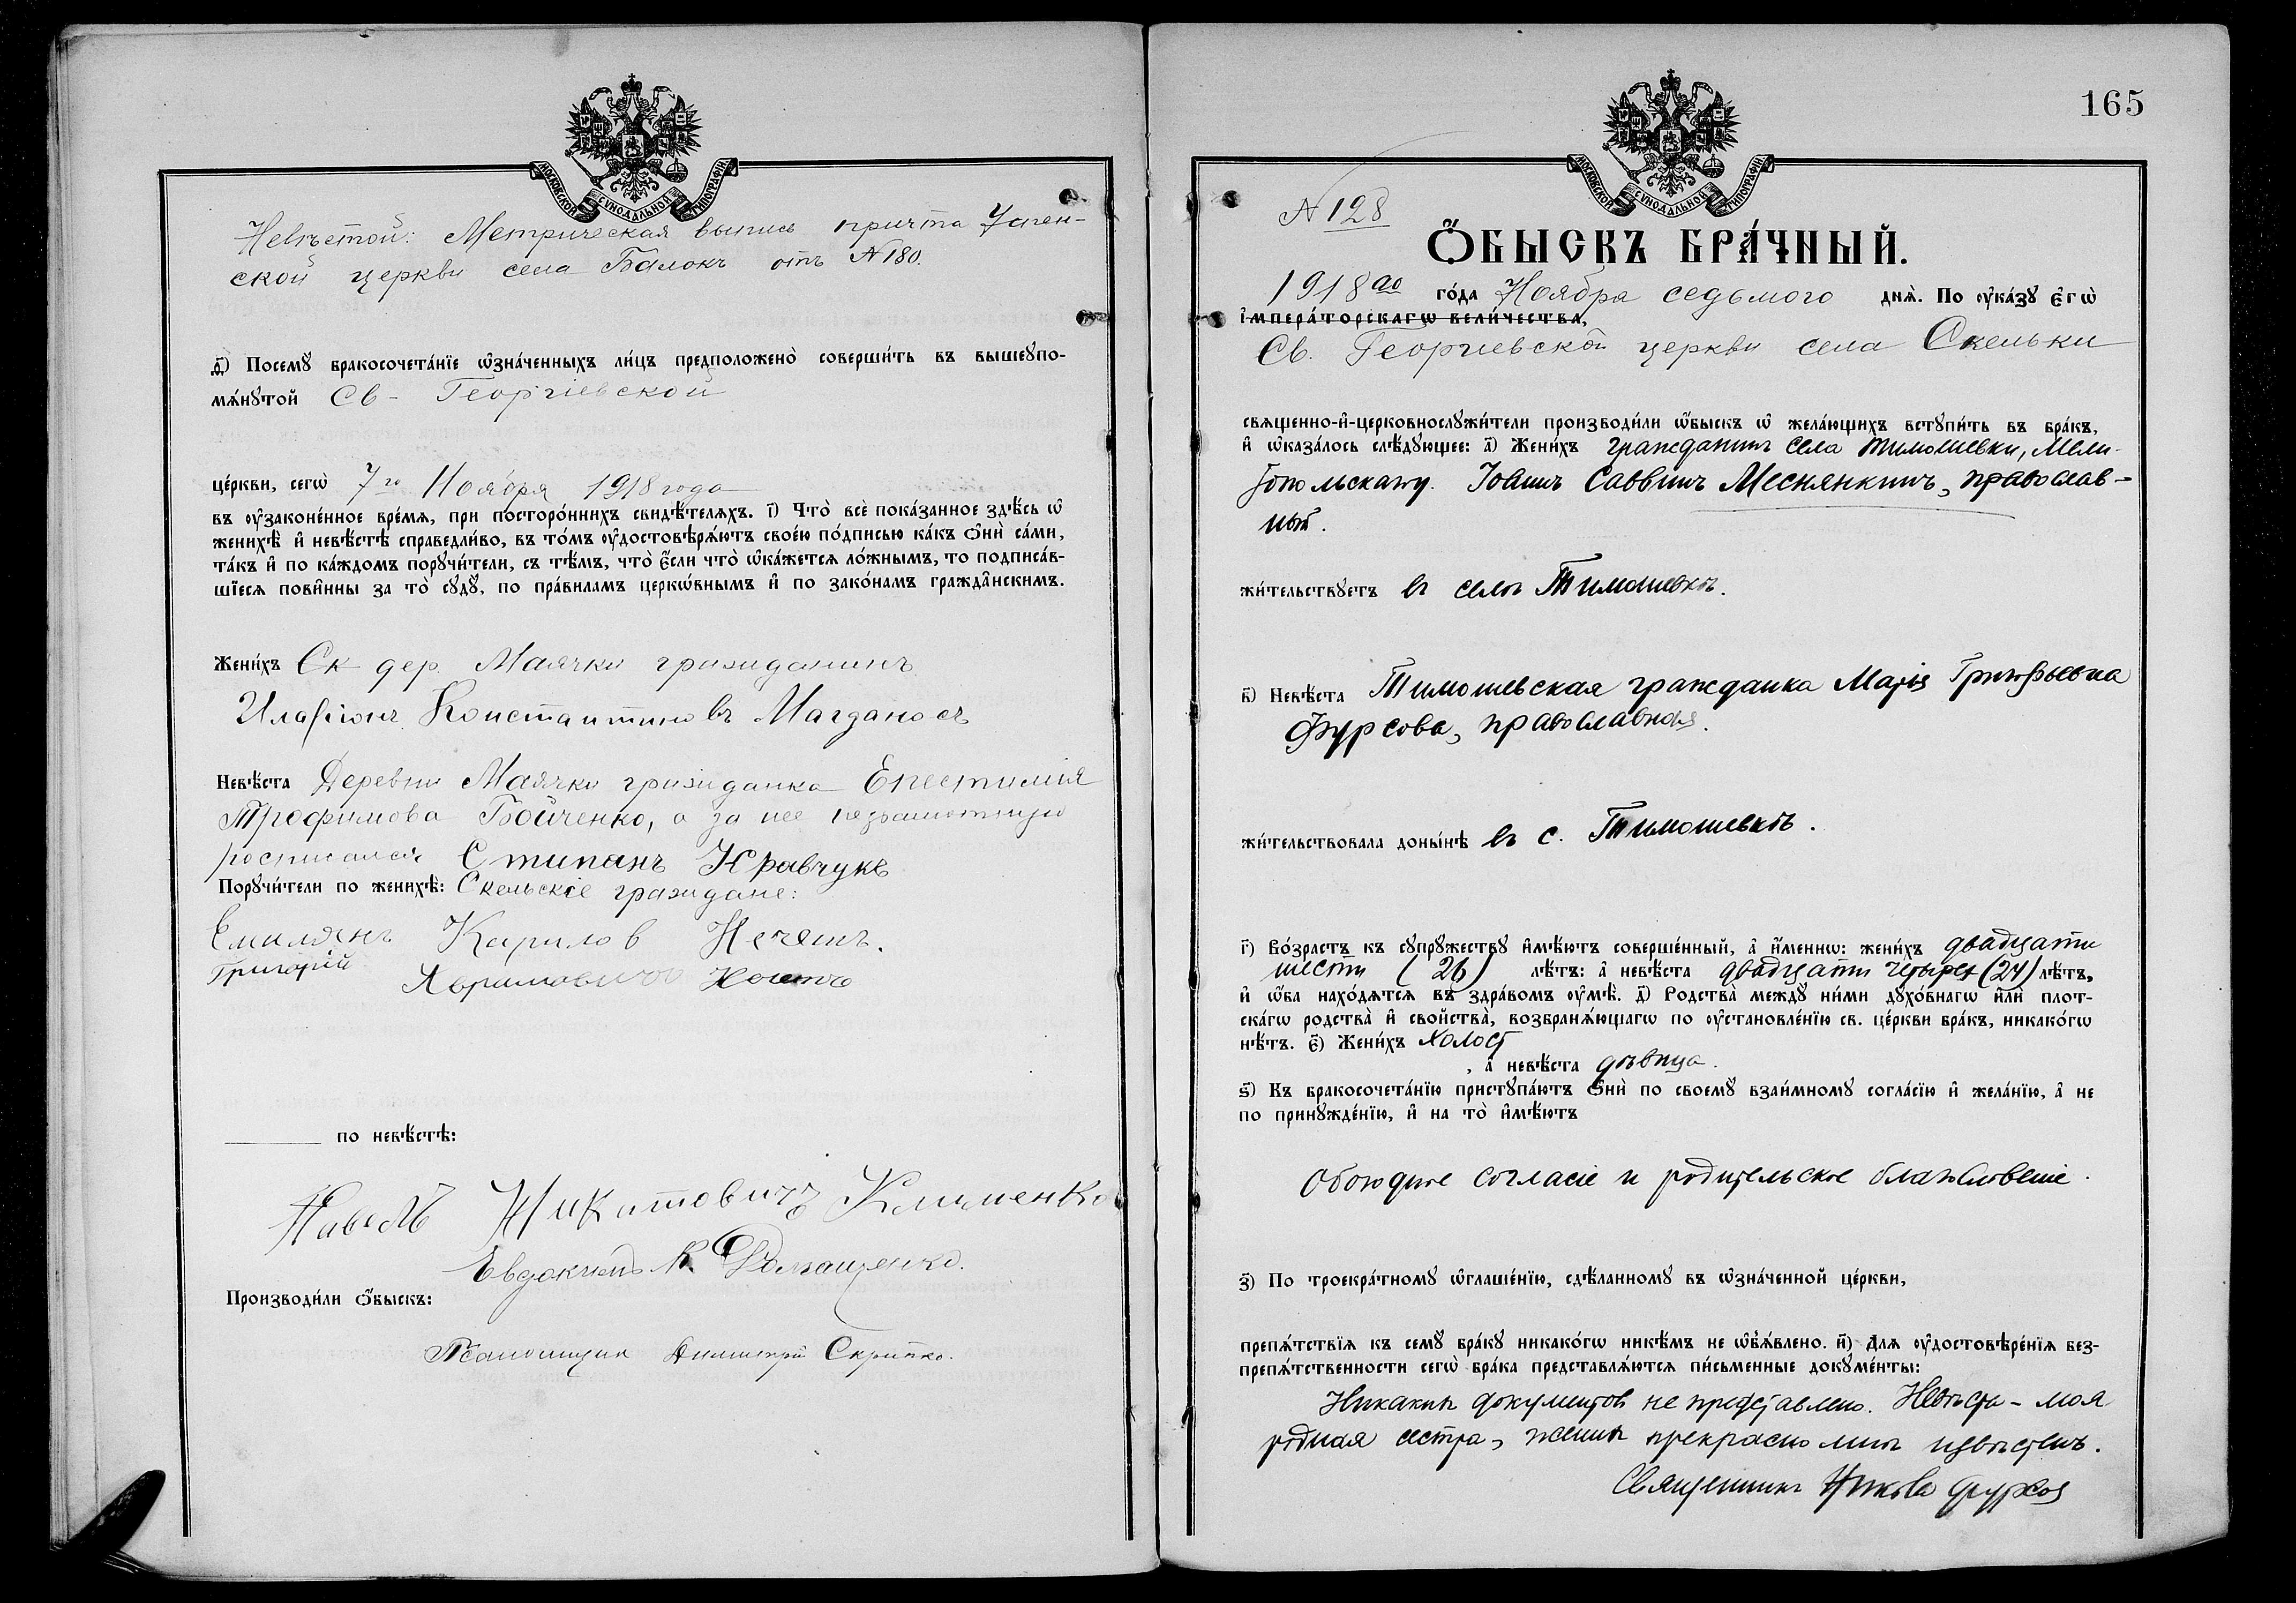 МОСКОВСКОЙ СУНОДАЛЬНОЙ ТИПОГРАФІИ
Невѣстой: Метрическая выпись причта Успен-
ской церкви села Балокъ отъ №180.
д҃і) Посемꙋ̀ бракосочета́нїе ѡ҆зна́ченныхъ ли́цъ предположено̀ соверши́ть въ вышеꙋпо-
мѧ́нꙋтой Св- Георгіевской
це́ркви, сегѡ̀ 7го Ноября 1918 года
въ ᲂу҆зако́ненное вре́мѧ, при посторо́ннихъ свидѣ́телѧхъ. і҃) Что̀ всѐ пока́занное здѣ́сь ѡ҆
женихѣ̀ и҆ невѣ́стѣ справедли́во, въ то́мъ ᲂу҆достовѣрѧ́ютъ свое́ю по́дписью ка́къ ѻ҆нѝ са́ми,
та́къ и҆ по ка́ждомъ порꙋчи́тели, съ тѣ́мъ, что̀ є҆́сли что̀ ѡ҆ка́жетсѧ ло́жнымъ, то подписа́в-
шїесѧ пови́нны за то̀ сꙋдꙋ̀, по пра́виламъ церкѡ́внымъ и҆ по зако́намъ гражда́нскимъ.
Жени́хъ Ск дер. Маячки гражданинъ
Иларіонъ Константиновъ Магданосъ
Невѣ́ста Деревни Маячки гражданка Епестимія
Трофимова Бойченко, а за нее неграмотную
росписался Стипанъ Кравчукъ
Порꙋчи́тели по женихѣ̀: Скельскіе граждане:
Емилянъ Кирилов Нечетъ.
Григорій Аврамовичъ
по невѣ́стѣ:
Павелъ Никитовичъ Клименко
Евдокимъ К. Ромащенко.
Производи́ли ѻ҆́быскъ:
Псаломщик Димитрій Скрипко.
165
МОСКОВСКОЙ СУНОДАЛЬНОЙ ТИПОГРАФІИ
№ 128
Ѻ҆́БЫСКЪ БРА́ЧНЫЙ.
1918го го́да Ноября седьмого днѧ̀. По ᲂу҆ка́зꙋ є҆гѡ̀
і҆мпера́торскагѡ вели́чества,
Св. Георгіевской церкви села Скельки
свѧщенно-и҆-церковнослꙋжи́тели производи́ли ѡ҆́быскъ ѡ҆ жела́ющихъ встꙋпи́ть въ бра́къ,
и҆ ѡ҆каза́лось слѣ́дꙋющее: а҃) Жени́хъ гражданинъ села Тимошевки, Мели-
топольскаго у. Іоаннъ Саввинъ Меснянкинъ, православ-
ный.
жи́тельствꙋетъ въ селѣ Тимошевкѣ.
в҃) Невѣ́ста Тимошевская гражданка Марія Григорьевна
Фурсова, православная.
жи́тельствовала доны́нѣ въ с. Тимошевкѣ.
г҃) Во́зрастъ къ сꙋпрꙋ́жествꙋ и҆мѣ́ютъ соверше́нный, а҆ и҆́меннѡ: жени́хъ двадцати
шести (26) лѣ́тъ: а҆ невѣ́ста двадцати четырех (24) лѣ́тъ,
и҆ ѡ҆́ба нахо́дѧтсѧ въ здра́вомъ ᲂу҆мѣ̀. д҃) Родства̀ междꙋ̀ ни́ми дꙋхо́внагѡ и҆лѝ плот-
ска́гѡ родства̀ и҆ сво́йства̀, возбранѧ́ющагѡ по ᲂу҆становле́нїю св. це́ркви бра́къ, никако́гѡ
нѣ́тъ. є҃) Жени́хъ холост
, а҆ невѣ́ста дѣвица.
ѕ҃) Къ бракосочета́нїю пристꙋпа́ютъ ѻ҆нѝ по своемꙋ̀ взаи́мномꙋ согла́сїю и҆ жела́нїю, а҆ не
по принꙋжде́нїю, и҆ на то̀ и҆мѣ́ютъ
Обоюдное согласіе и родительское благословеніе.
з҃) По троекра́тномꙋ ѡ҆глаше́нїю, сдѣ́ланномꙋ въ ѡ҆зна́ченной це́ркви,
препѧ́тствїѧ къ семꙋ̀ бра́кꙋ никако́гѡ никѣ́мъ не ѡ҆б̾ѧ́влено. и҃) Длѧ ᲂу҆достовѣре́нїѧ без-
препѧ́тственности сегѡ̀ бра́ка представлѧ́ютсѧ пи́сьменные докꙋме́нты:
Никаких документов не представлено. Невѣста - моя
родная сестра, жених прекрасно мнѣ извѣстенъ.
Священник Фурсов